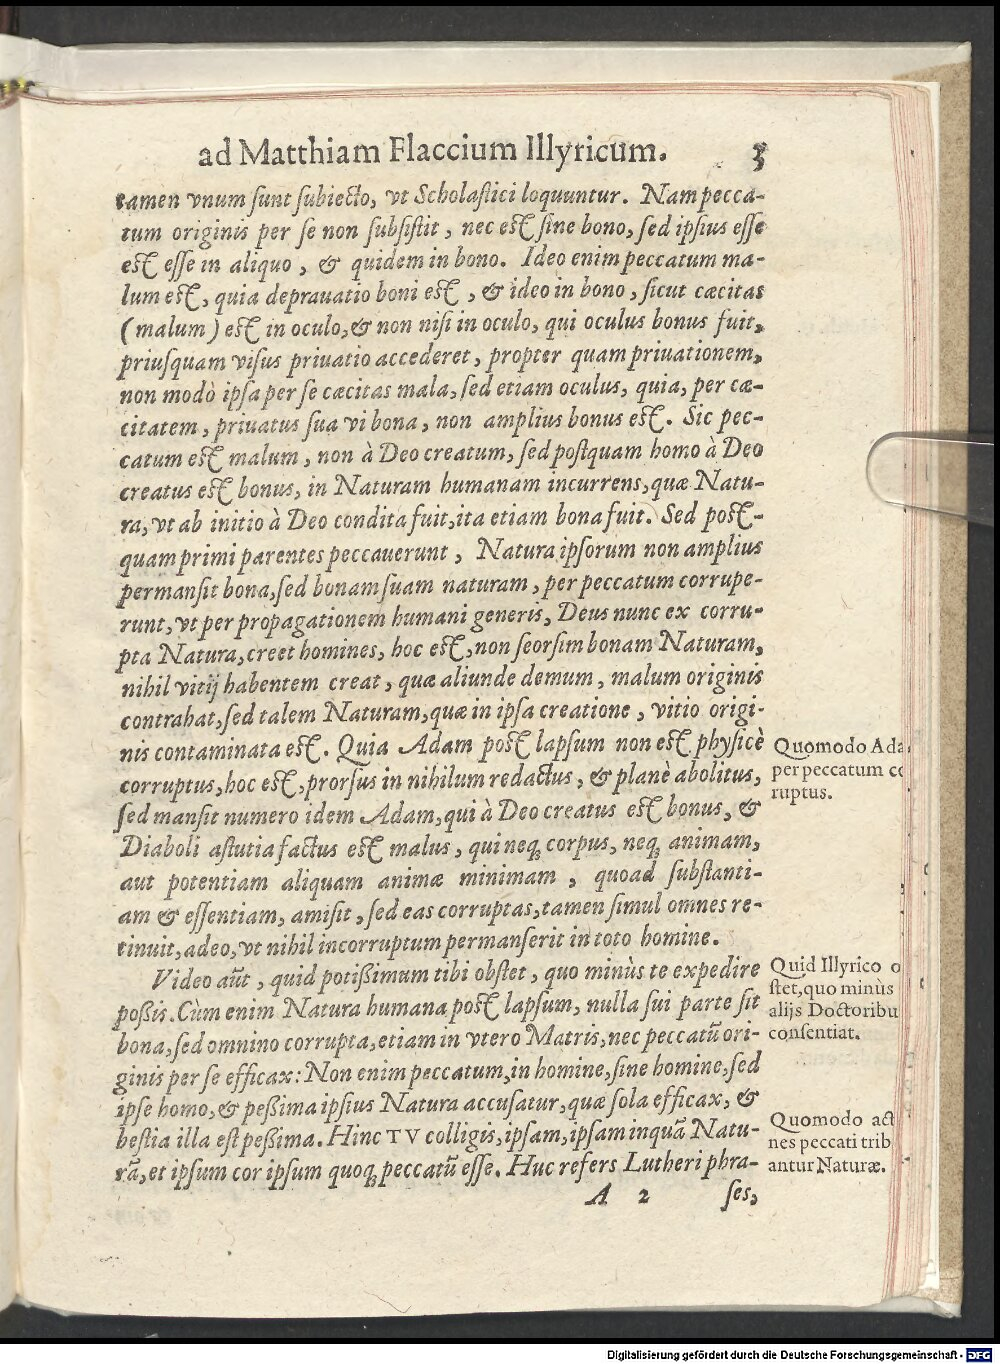 ad Matthiam Flaccium Illyricum. 3
tamen vnum ſunt ſubiecto, vt Scholaſtici loquuntur. Nam pecca-
tum originis per ſe non ſubſiſtit, nec eſt ſine bono, ſed ipſius eſſe
eſt eſſe in aliquo, & quidem in bono. Ideo enim peccatum ma-
lum eſt, quia deprauatio boni eſt, & ideo in bono, ſicut cæcitas
(malum) eſt in oculo, & non niſi in oculo, qui oculus bonus fuit,
priuſquam viſus priuatio accederet, propter quam priuationem,
non modò ipſa per ſe cæcitas mala, ſed etiam oculus, quia, per cæ-
citatem, priuatus ſua vi bona, non amplius bonus eſt. Sic pec-
catum eſt malum, non à Deo creatum, ſed poſtquam homo à Deo
creatus eſt bonus, in Naturam humanam incurrens, quæ Natu-
ra, vt ab initio à Deo condita fuit, ita etiam bona fuit. Sed poſt-
quam primi parentes peccauerunt, Natura ipſorum non amplius
permanſit bona, ſed bonam ſuam naturam, per peccatum corrupe-
runt, vt per propagationem humani generis, Deus nunc ex corru-
pta Natura, creet homines, hoc eſt, non ſeorſim bonam Naturam,
nihil vitij habentem creat, quæ aliunde demum, malum originis
contrahat, ſed talem Naturam, quæ in ipſa creatione, vitio origi-
nis contaminata eſt. Quia Adam poſt lapſum non eſt phyſicè
corruptus, hoc eſt, prorſus in nihilum redactus, & planè abolitus,
ſed manſit numero idem Adam, qui à Deo creatus eſt bonus, &
Diaboli aſtutia factus eſt malus, qui neq; corpus, neq; animam,
aut potentiam aliquam animæ minimam, quoad ſubſtanti-
am & eſſentiam, amiſit, ſed eas corruptas, tamen ſimul omnes re-
tinuit, adeo, vt nihil incorruptum permanſerit in toto homine.
Quomodo Ada
per peccatum co
ruptus.
Video aūt, quid potißimum tibi obſtet, quo minùs te expedire
poßis. Cùm enim Natura humana poſt lapſum, nulla ſui parte ſit
bona, ſed omnino corrupta, etiam in vtero Matris, nec peccatū ori-
ginis per ſe efficax: Non enim peccatum, in homine, ſine homine, ſed
ipſe homo, & peßima ipſius Natura accuſatur, quæ ſola efficax, &
beſtia illa eſt peßima. Hinc TV colligis, ipſam, ipſam inquã Natu-
rã, et ipſum cor ipſum quoq; peccatū eſſe. Huc refers Lutheri phra-
Quid Illyrico o
ſtet, quo minùs
alijs Doctoribu
conſentiat.
Quomodo act
nes peccati trib
antur Naturæ.
A 2 ſes,
Digitalisierung gefördert durch die Deutsche Forschungsgemeinschaft - DFG